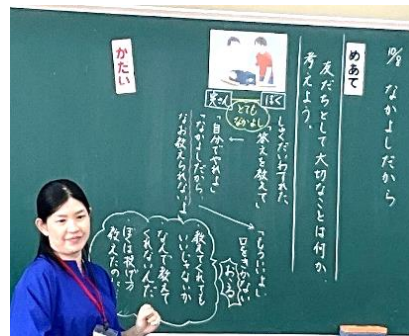 10/8 なかよしだから
めあて
友だちとして大切なことは何か、
考えよう。
ぼく
とても
なかよし
実さん
しゅくだいわすれた、
「答えを教えて」
「自分でやれよ」
「なかよしだから、
なお教えられないよ」
「もういいよ」
口をきかない
おこる
教えてくれても
いいじゃないか
なんで教えて
くれないんだ
ぼくは投げ方
教えたのに
かたい